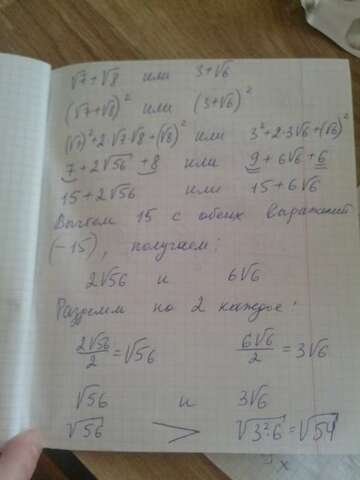 √7+√8 или 3+√6
(√7+√8)² или (3+√6)²
(√7)²+2·√7·√8+(√8)² или 3²+2·3√6+(√6)²
7+2√56+8 или 9+6√6+6
15+2√56 или 15+6√6
Вычтем 15 с обоих выражений
(-15), получаем:
2√56 и 6√6
Разделим на 2 каждое:
2√56/2=√56 6√6/2=3√6
√56 и 3√6
√56 > √3²·6=√54